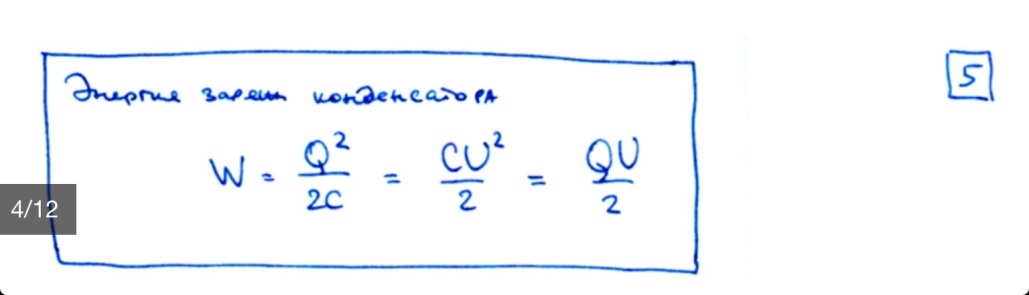 Энергия заряж конденсатора
5
W = Q²/2C = CU²/2 = QU/2
4/12